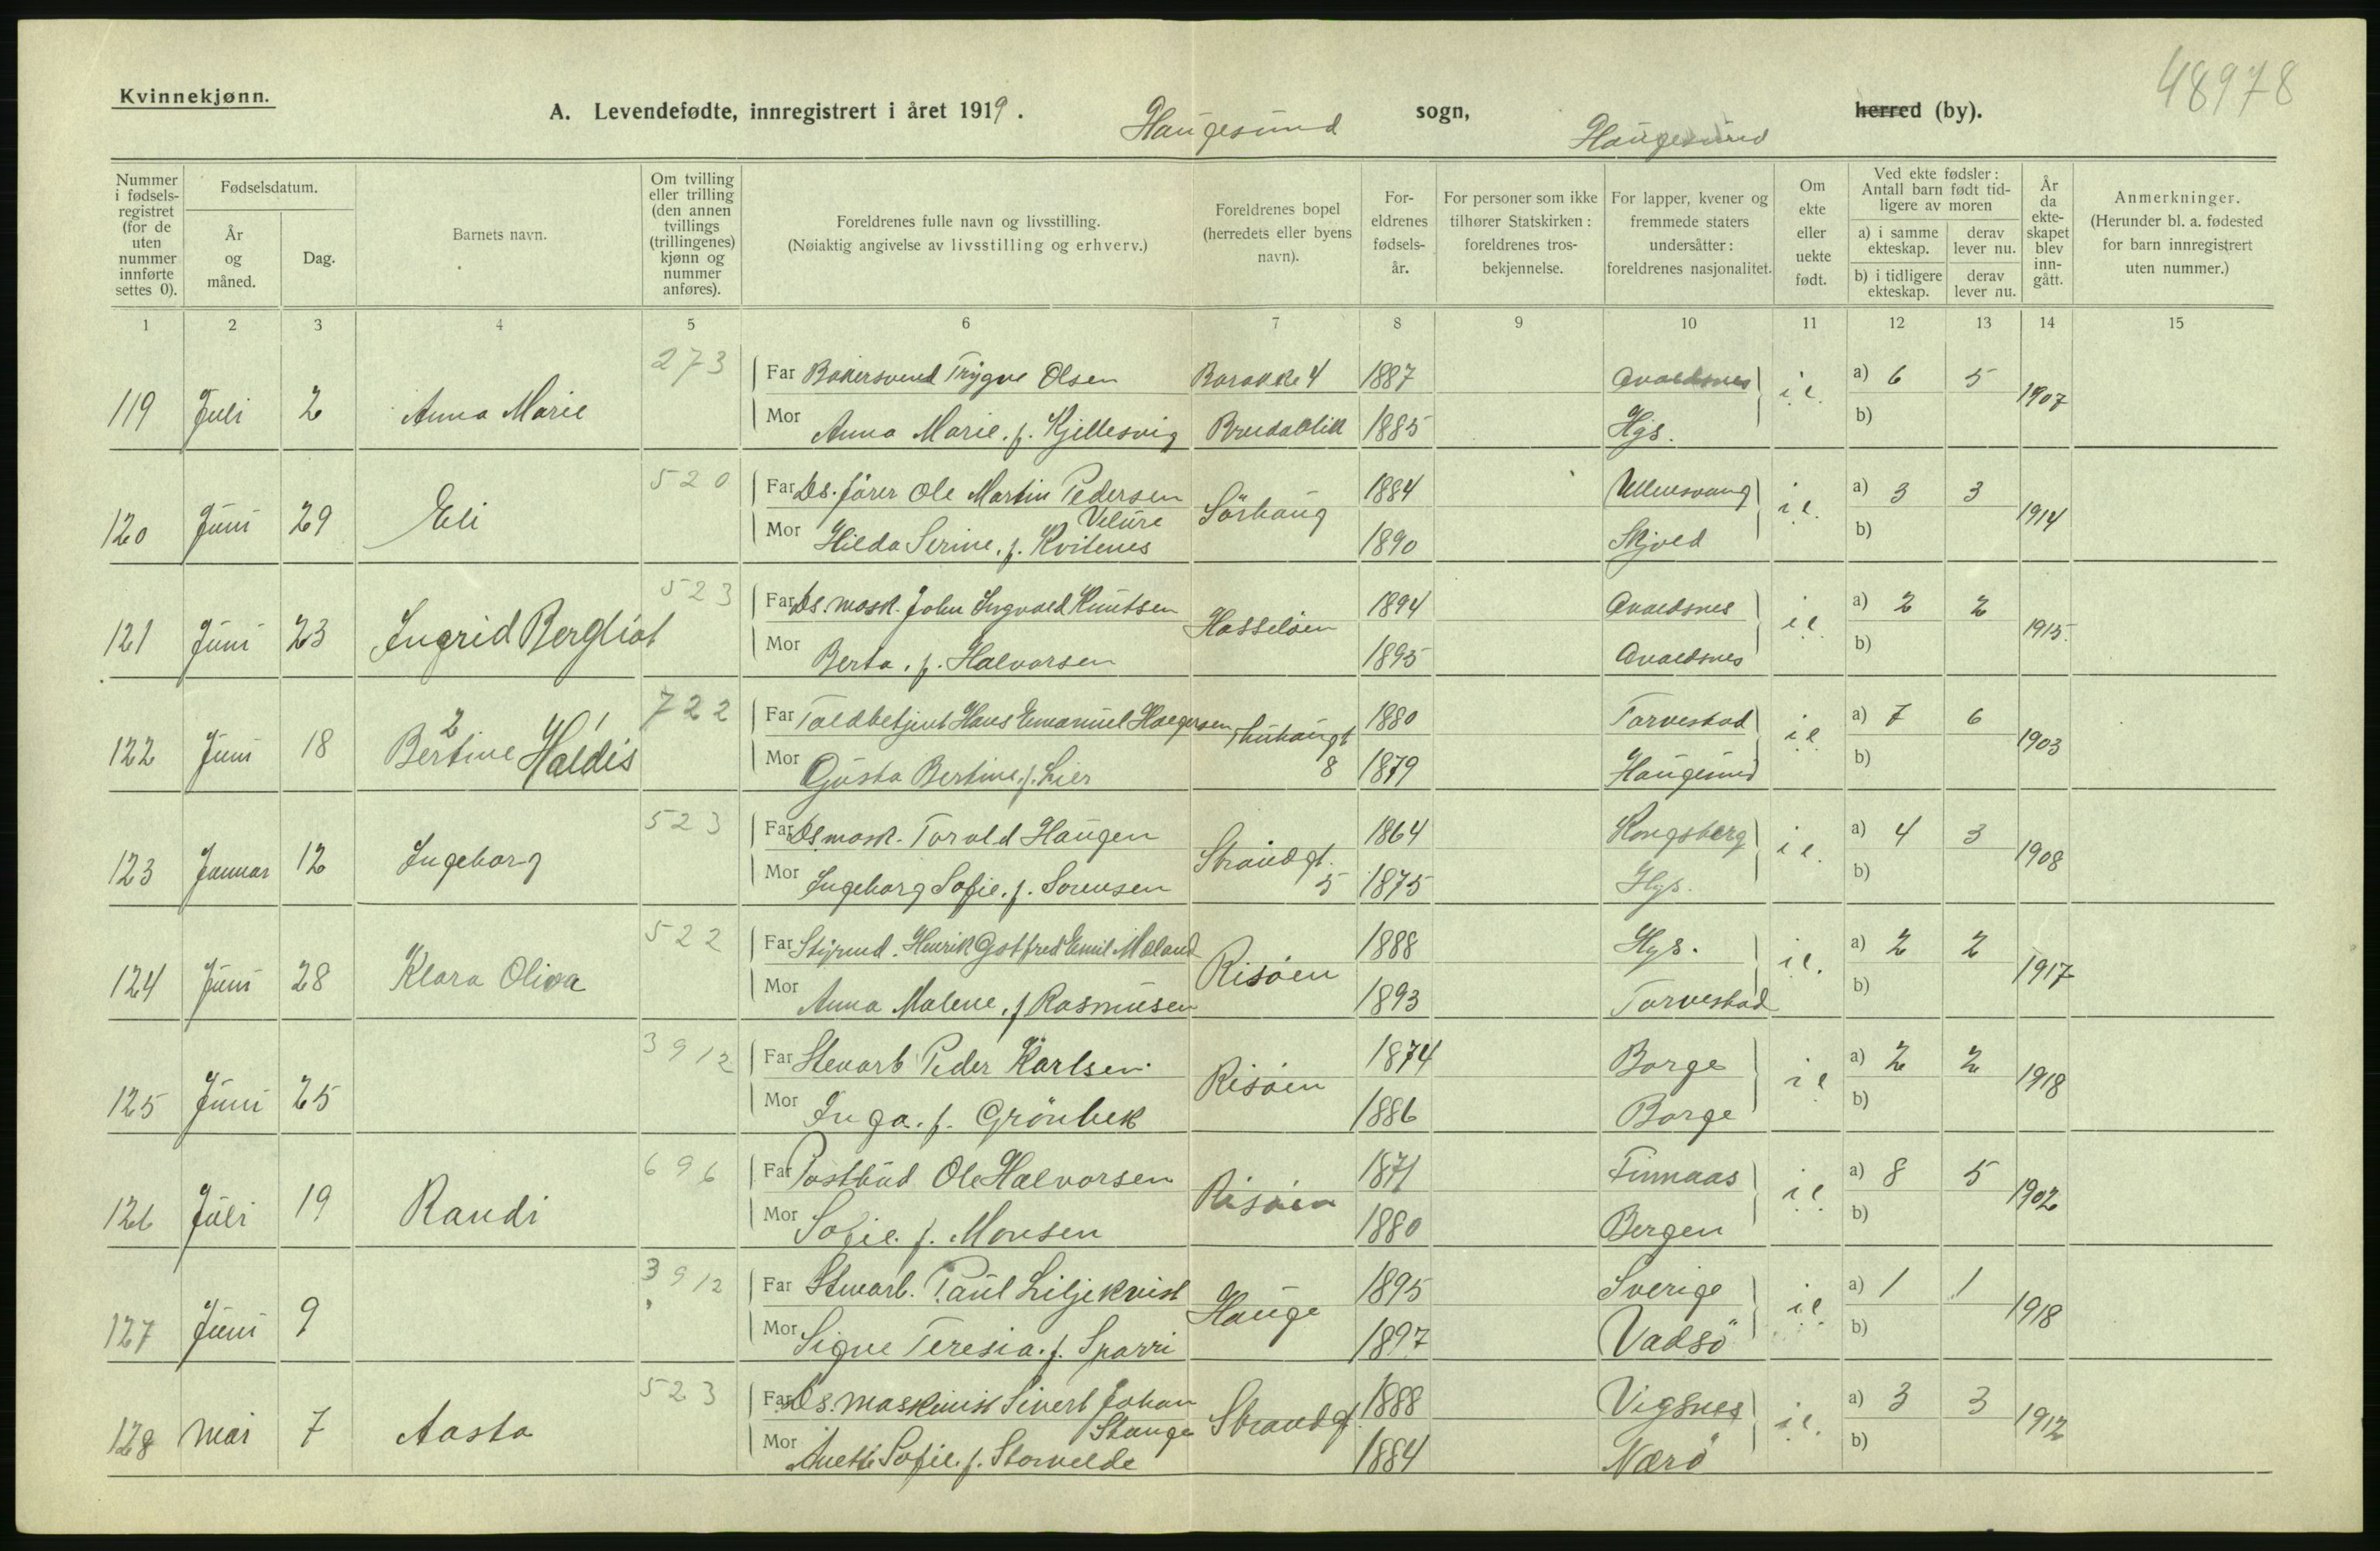 48978
Kvinnekjønn.
A. Levendefødte, innregistrert i året 1919. Haugesund sogn, Haugesund herred (by).
Nummer i fødsels-registret (for de uten nummer innførte settes 0).
Fødselsdatum.
År og måned.
Dag.
Barnets navn.
Om tvilling eller trilling (den annen tvillings (trillingenes) kjønn og nummer anføres).
Foreldrenes fulle navn og livsstilling.
(Nøiaktig angivelse av livsstilling og erhverv.)
Foreldrenes bopel (herredets eller byens navn).
For-eldrenes fødsels-år.
For personer som ikke tilhører Statskirken: foreldrenes tros-bekjennelse.
For lapper, kvener og fremmede staters undersåtter: foreldrenes nasjonalitet.
Om ekte eller uekte født.
Ved ekte fødsler: Antall barn født tid-ligere av moren
a) i samme ekteskap.
derav lever nu.
b) i tidligere ekteskap.
derav lever nu.
År da ekte-skapet blev inn-gått.
Anmerkninger.
(Herunder bl. a. fødested for barn innregistrert uten nummer.)
1 2 3 4 5 6 7 8 9 10 11 12 13 14 15
273 Far Bakersvend Trygve Olsen Barakke 4 1887 Avaldsnes a) 6 5
119 Juli 2 Anna Marie i e. 1907
Mor Anna Marie. f. Kjellesvig Breidablik 1885 Hgs. b)
520 Far Ds. fører Ole Martin Pedersen 1884 Ullensvang a) 3 3
120 Juni 29 Eli Velure Sörhaug i e. 1914
Mor Hilda Serine. f. Kvitenes 1890 Skjold b)
523 Far Ds. mask. John Ingvald Knutsen 1894 Avaldsnes a) 2 2
121 Juni 23 Ingrid Bergliot Hasseløen i e. 1915.
Mor Berta. f. Halvorsen 1895 Avaldsnes b)
722 Far Toldbetjent Hans Emanuel 1880 Torvestad a) 7 6
2 1
122 Juni 18 Bertine Haldis 8 i e 1903
Mor Gusta Bertine. f. Lier 1879 Haugesund b)
523 Far Ds mask. Torald Haugen 1864 Kongsberg a) 4 3
123 Januar 12 Ingeborg Strandgt. 5 i e. 1908
Mor Ingeborg Sofie. f. Sorensen 1875 Hgs. b)
522 Far Styrmd. Henrik Gotfred Emil Mæland 1888 Hgs. a) 2 2
124 Juni 28 Klara Oliva Risøen i e. 1917
Mor Anna Malene. f Rasmusen 1893 Torvestad b)
3912 Far Stenarb Peder Karlsen. 1874 Borge a) 2 2
125 Juni 25 Risøen i e 1918
Mor Inga. f. Grönbek 1886 Borge b)
696 Far Postbud Ole Halvorsen 1871 Finnaas a) 8 5
126 Juli 19 Randi Risøen i e 1902
Mor Sofie. f. Monsen 1880 Bergen b)
3912 Far Stenarb. Paul Liljekvist 1895 Sverige a) 1 1
127 Juni 9 Hauge i e 1918
Mor Signe Teresia. f. Sparri 1897 Vadsö b)
523 Far Ds. maskinist Sivert Johan 1888 Vigsnes a) 3 3
128 Mai 7 Aasta Stange Strandgt. i e. 1912
Mor Anette Sofie. f. Storvelde 1884 Nærö b)